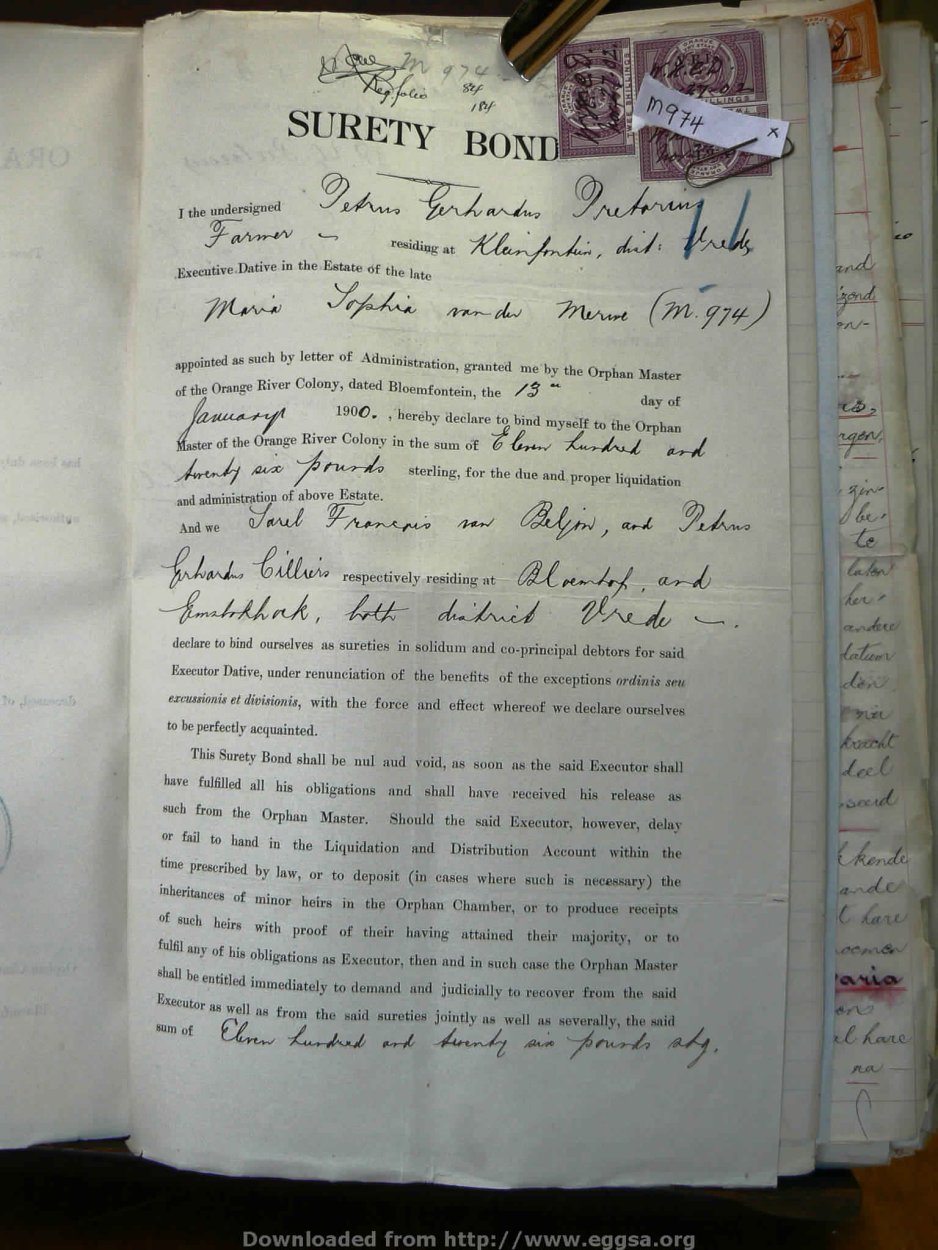 M 974
Reg folio 84
184
SURETY BOND
M974 x
I the undersigned Petrus Gerhardus Pretorius
Farmer – residing at Kleinfontein, dist: Vrede,
Executive Dative in the Estate of the late
Maria Sophia van der Merwe (M. 974)
appointed as such by letter of Administration, granted me by the Orphan Master
of the Orange River Colony, dated Bloemfontein, the 13 day of
January 1900. , hereby declare to bind myself to the Orphan
Master of the Orange River Colony in the sum of Eleven hundred and
twenty six pounds sterling, for the due and proper liquidation
and administration of above Estate.
And we Sarel Francois van Beljon, and Petrus
Gerhardus Cilliers respectively residing at Bloemhof, and
both district Vrede –.
declare to bind ourselves as sureties in solidum and co-principal debtors for said
Executor Dative, under renunciation of the benefits of the exceptions ordinis seu
excussionis et divisionis, with the force and effect whereof we declare ourselves
to be perfectly acquainted.
This Surety Bond shall be nul aud void, as soon as the said Executor shall
have fulfilled all his obligations and shall have received his release as
such from the Orphan Master. Should the said Executor, however, delay
or fail to hand in the Liquidation and Distribution Account within the
time prescribed by law, or to deposit (in cases where such is necessary) the
inheritances of minor heirs in the Orphan Chamber, or to produce receipts
of such heirs with proof of their having attained their majority, or to
fulfil any of his obligations as Executor, then and in such case the Orphan Master
shall be entitled immediately to demand and judicially to recover from the said
Executor as well as from the said sureties jointly as well as severally, the said
sum of Eleven hundred and twenty six pounds stg.
and
be
te
laten
andere
datum
den
kracht
deel
kende
ande
t hare
aria
on
el hare
na
Downloaded from http://www.eggsa.org